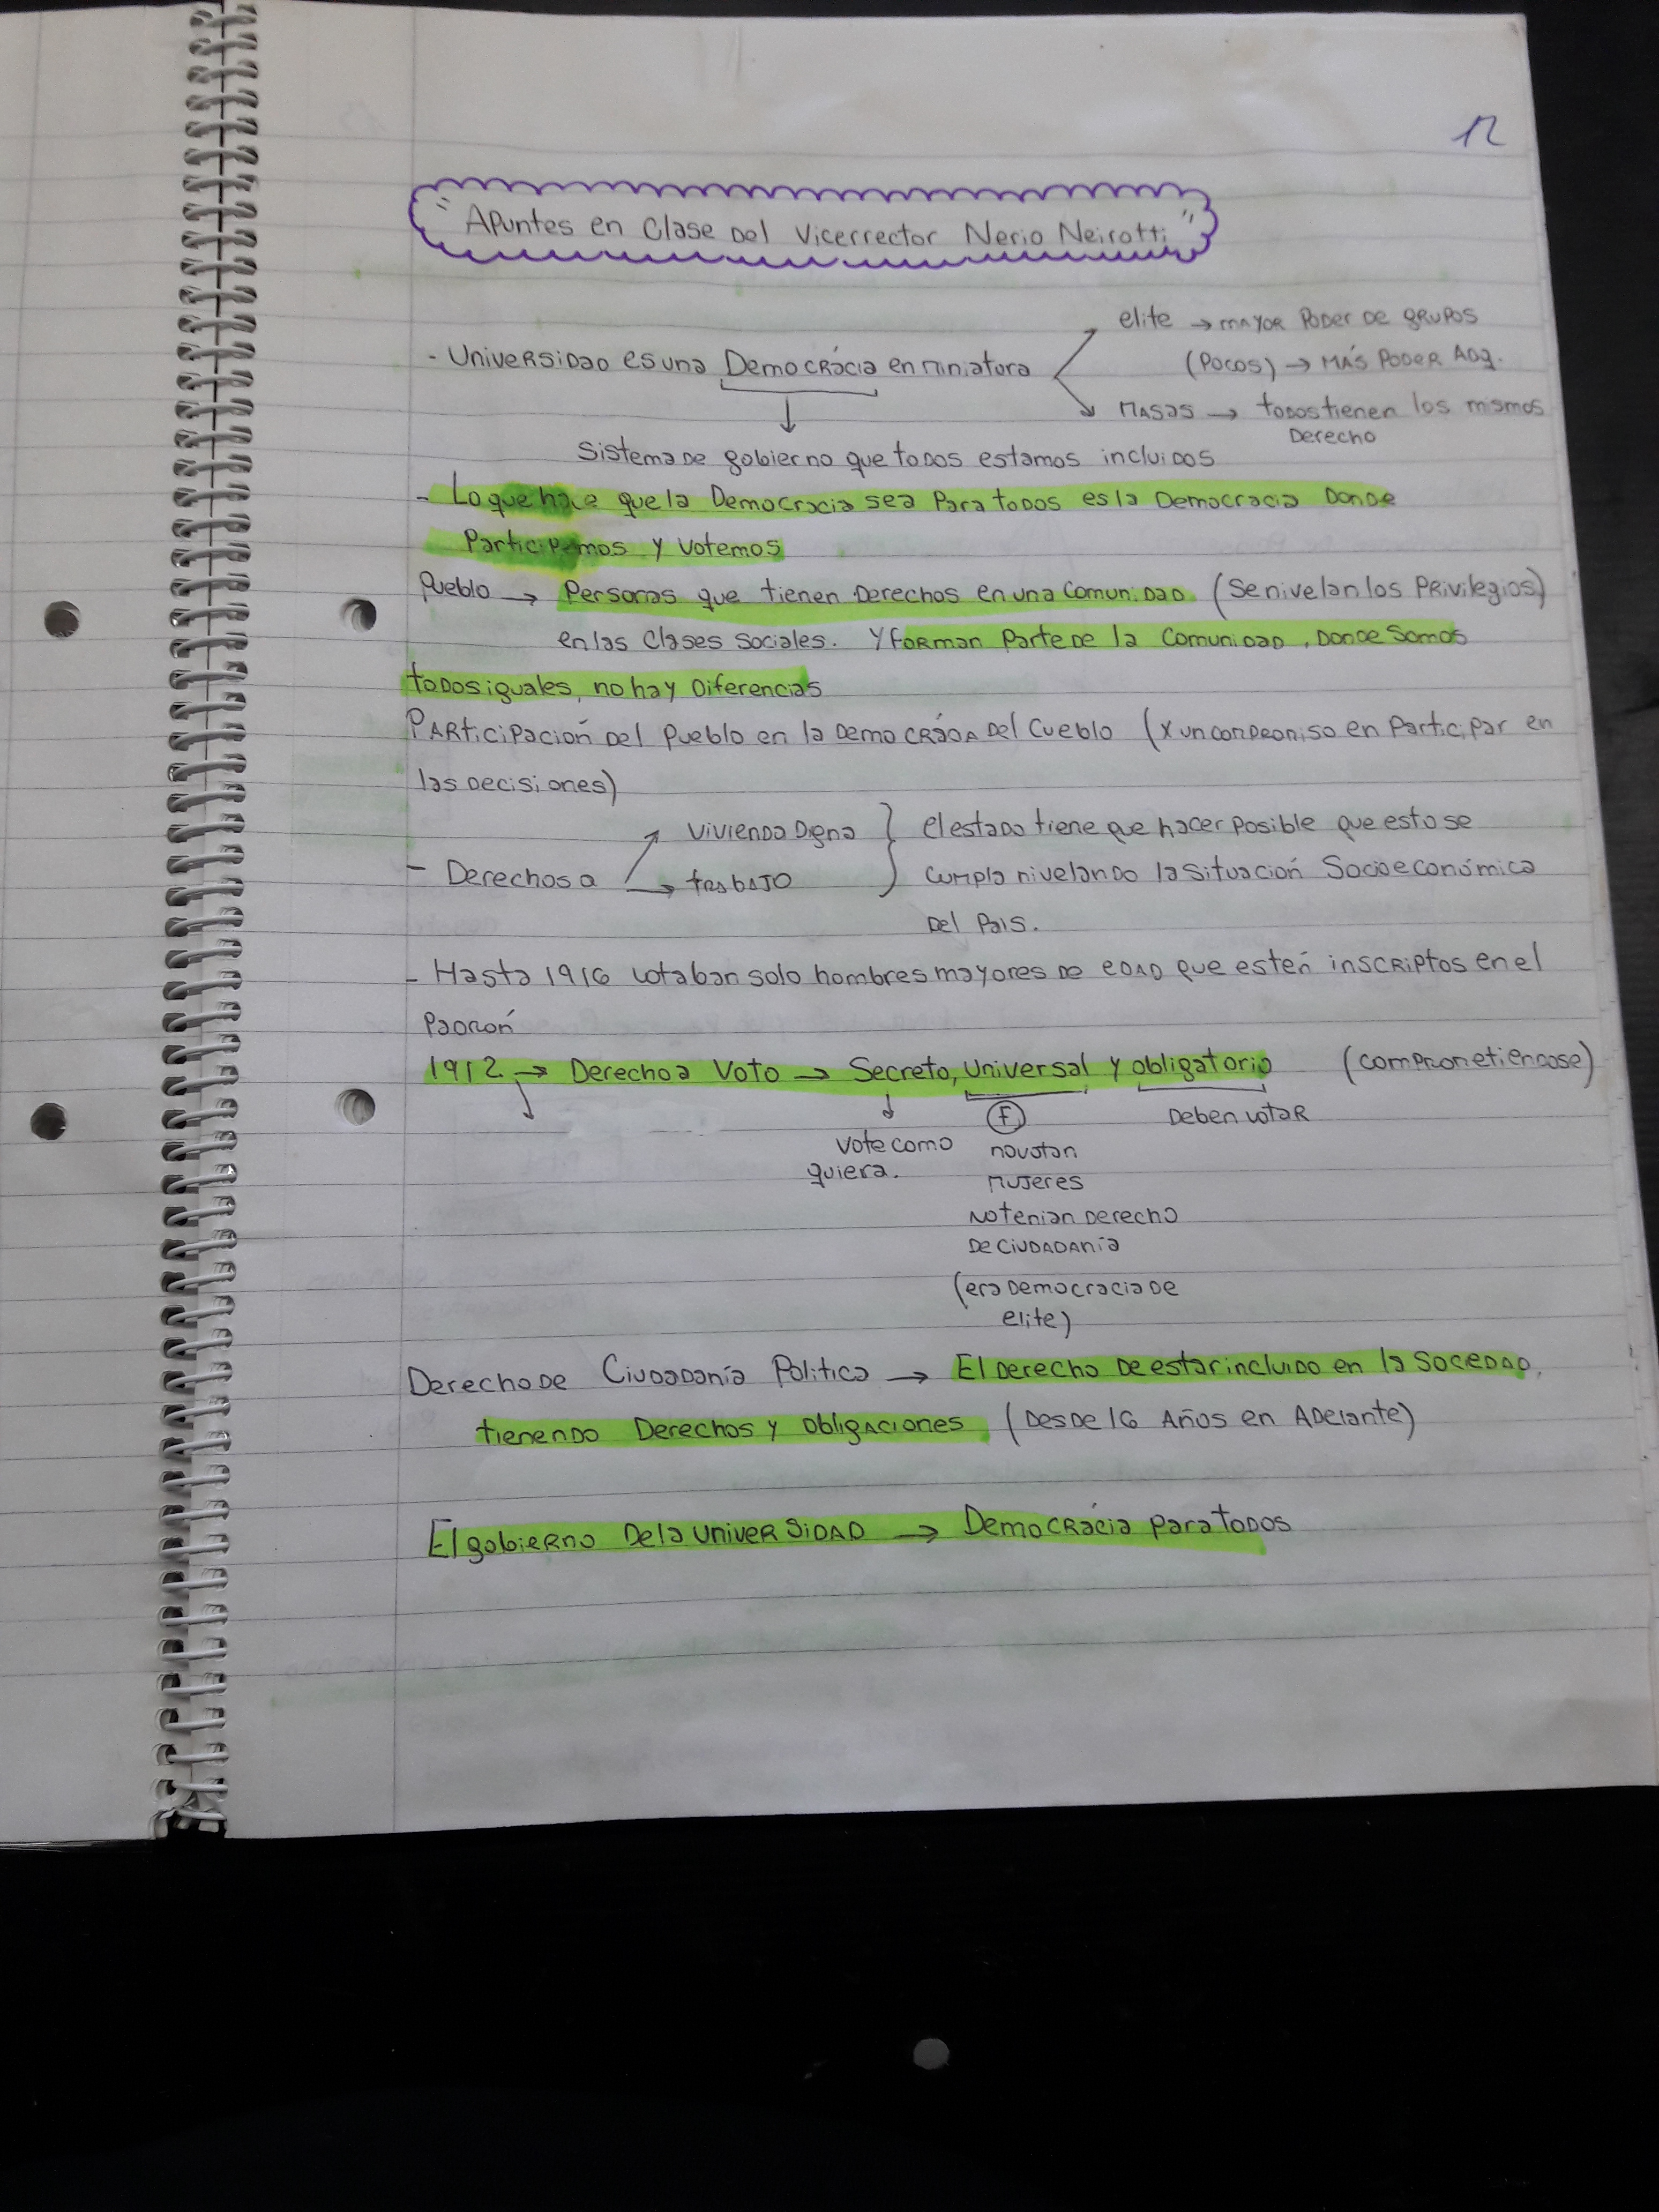 12
"Apuntes en Clase Del Vicerrector Nerio Neirotti"
elite → mayor Poder de grupos
- Universidad es una Democrácia en miniatura
(Pocos) → Más Poder Adq.
Masas → todos tienen los mismos
Derecho
Sistema de gobierno que todos estamos incluidos
- Lo que hace que la Democracia sea Para todos es la Democracia Donde
Participemos y Votemos
Pueblo → Personas que tienen Derechos en una Comunidad. (Se nivelan los Privilegios)
en las Clases Sociales. Y forman Parte de la Comunidad, Donde Somos
todos iguales, no hay Diferencias
Participación Del Pueblo en la Democrácia Del Cueblo (x un compromiso en Participar en
las Decisiones)
Vivienda Digna } el estado tiene que hacer posible que esto se
- Derechos a → trabajo
cumpla nivelando la situación Socioeconómica
Del Pais.
- Hasta 1916 votaban solo hombres mayores de edad que estén inscriptos en el
Padrón
1912 → Derecho a Voto → Secreto, Universal y obligatorio (comprometiendose)
(F) Deben votar
Vote como no votan
quiera. mujeres
No tenian Derecho
De Ciudadanía
(era Democracia de
elite)
Derecho de Ciudadanía Politica → El Derecho de estar incluido en la Sociedad,
tienendo Derechos y obligaciones (Desde 16 Años en Adelante)
El gobierno De la Universidad → Democrácia para todos